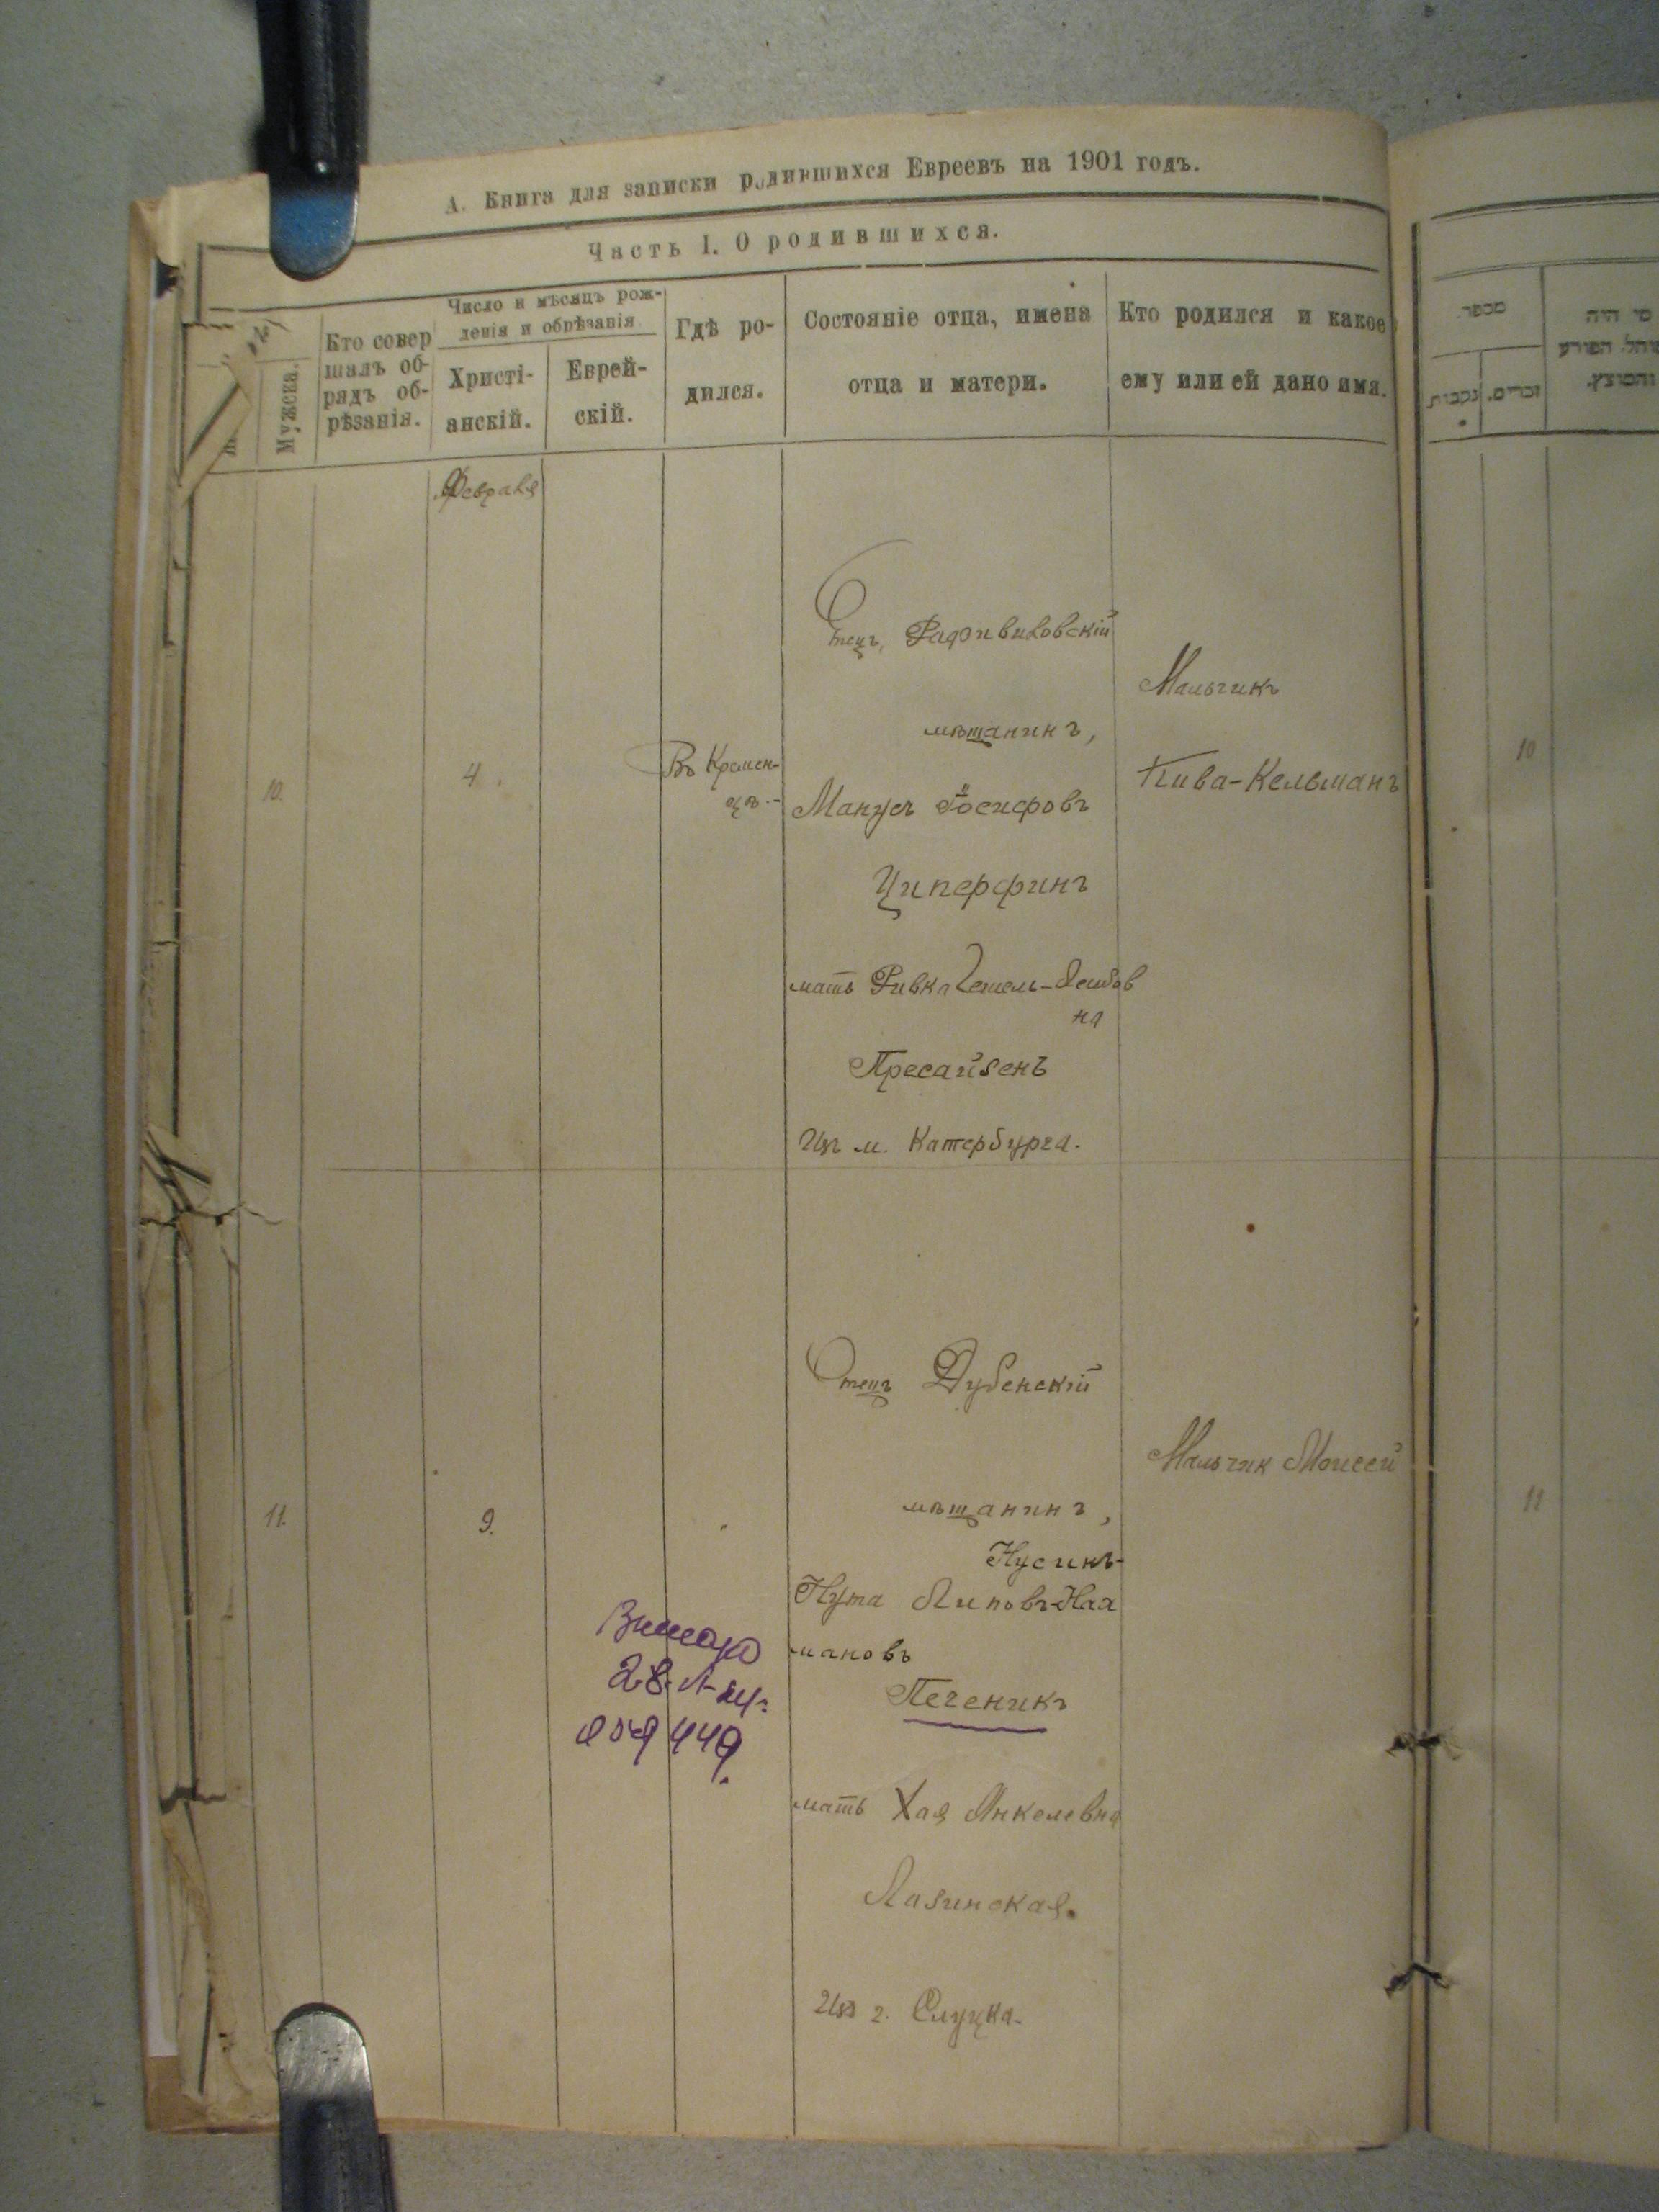 А. Книга для записки родившихся Евреевъ на 1901 годъ.
Часть I. О родившихся.
№
Мужска.
Кто совер
шалъ об-
рядъ об-
рѣзанія.
Число и мѣсяцъ рож-
денія и обрѣзанія
Христі-
анскій.
Еврей-
скій.
Гдѣ ро-
дился.
Состояніе отца, имена
отца и матери.
Кто родился и какое
ему или ей дано имя.
Февраля
10.
4.
Въ Кремен-
цѣ.-
Отецъ, Радзивиловскій
мѣщанинъ,
Манусъ Іосифовъ
Циперфинъ
мать Ривка
на
Пресайзенъ
Изъ м. Катербурга.
Мальчикъ
Кива-Кельманъ
11.
9.
Отецъ Дубенскій
мѣщанинъ,
Нусинъ-
Нута Липовъ-Нах
мановъ
Печеникъ
мать Хая Янкелевна
Лазинская.
Изъ г. Слуцка.
Мальчик Моисей
449.
מספר.
זכרים.
נקבות
מי היה
10
11